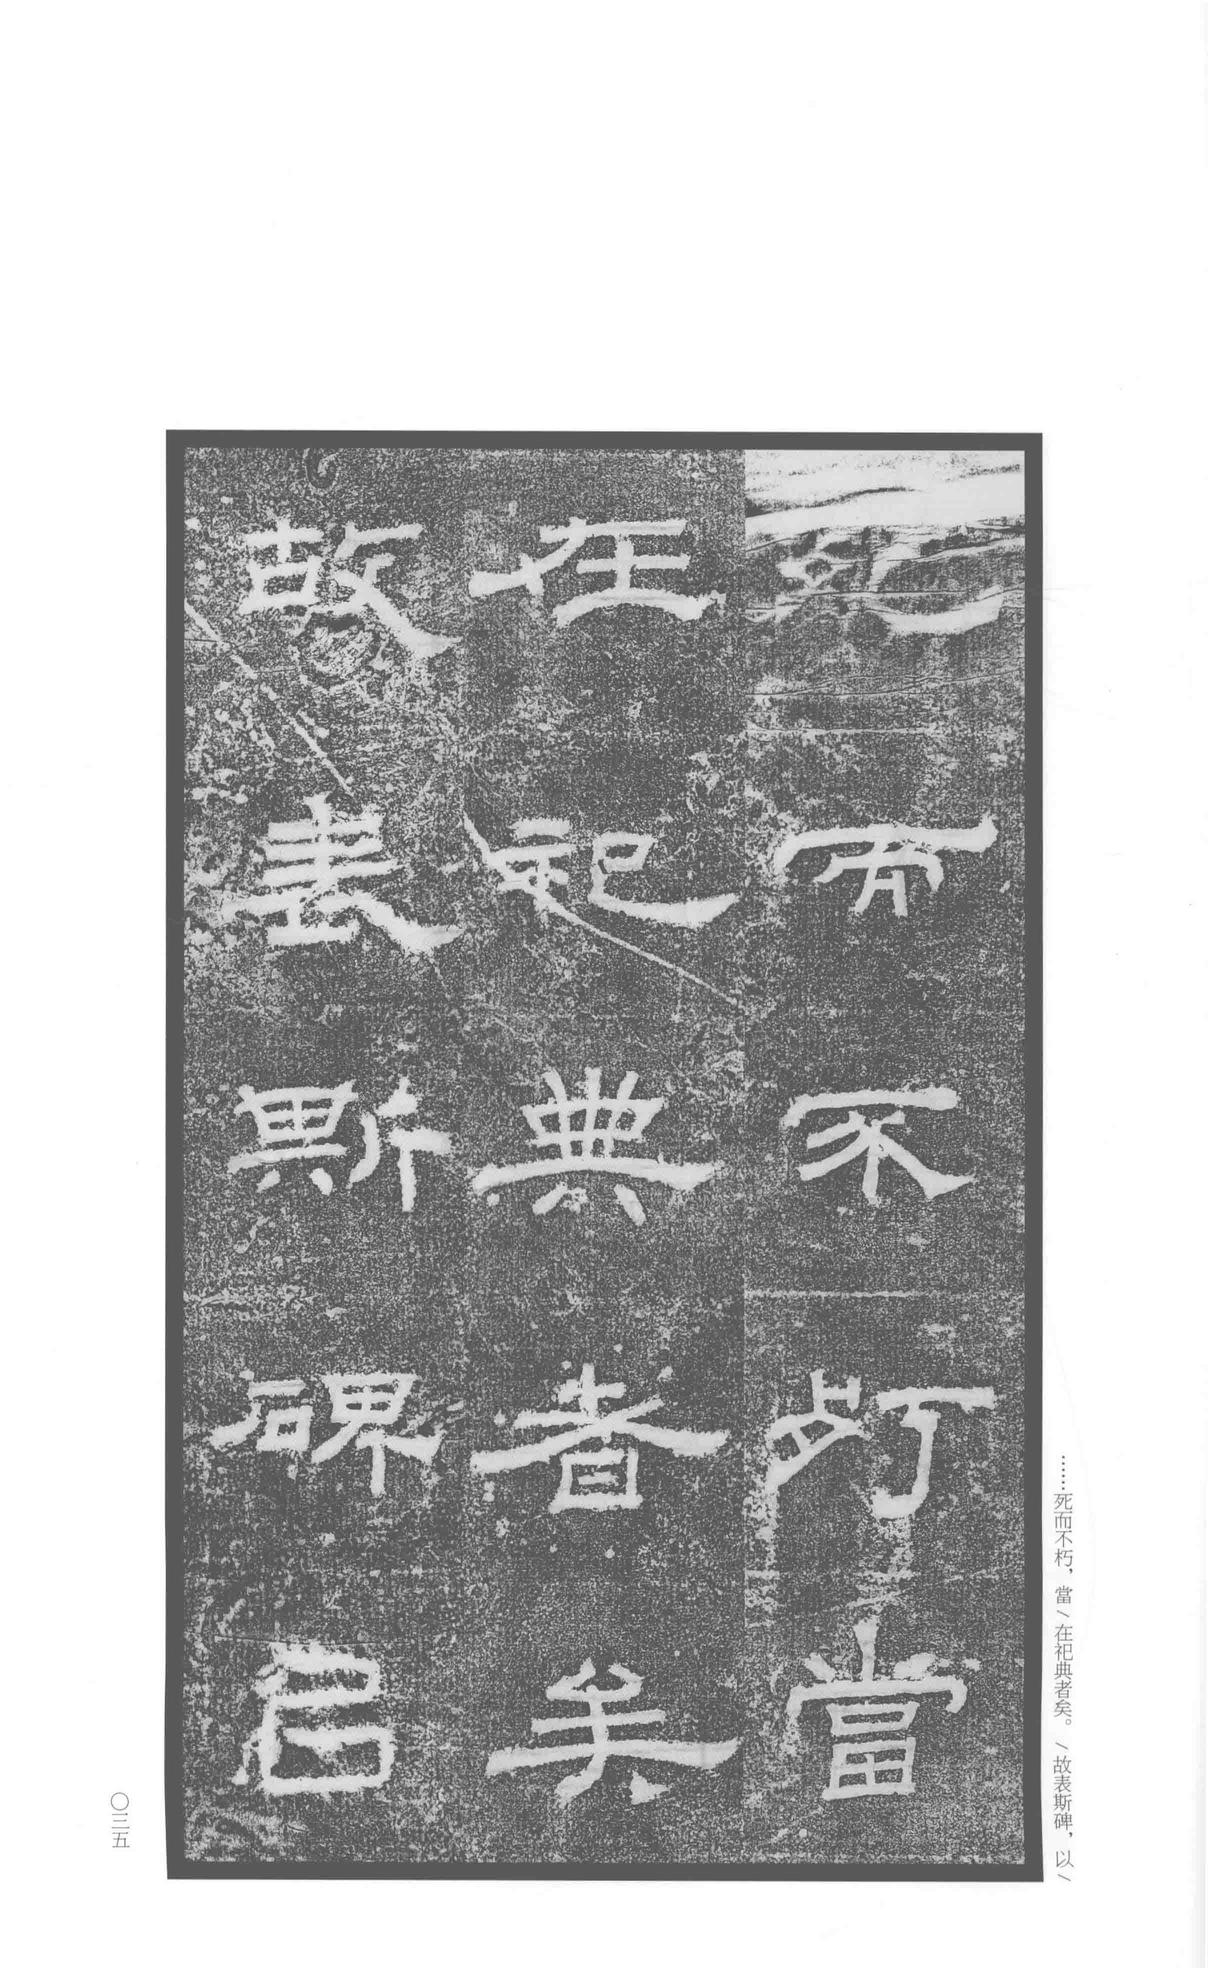 死而不朽當
在祀典者矣
故表斯碑以
……死而不朽，當/在祀典者矣。/故表斯碑，以/
〇三五